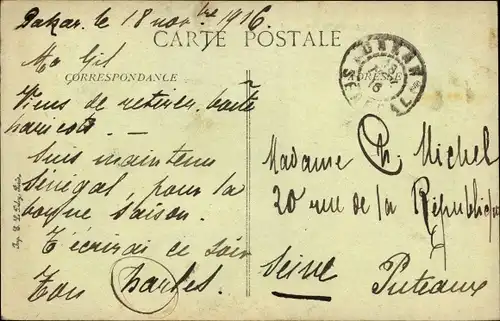 Dakar le 18 novbre 1916
CARTE POSTALE
CORRESPONDANCE
ADRESSE
Ma Gil
Viens de retirer boîte
haricots. —
Suis maintenu
Sénégal, pour la
bonne saison.
T'écrirai ce soir
Ton Charles.
Madame Ch. Michel
20 rue de la République
Seine Puteaux